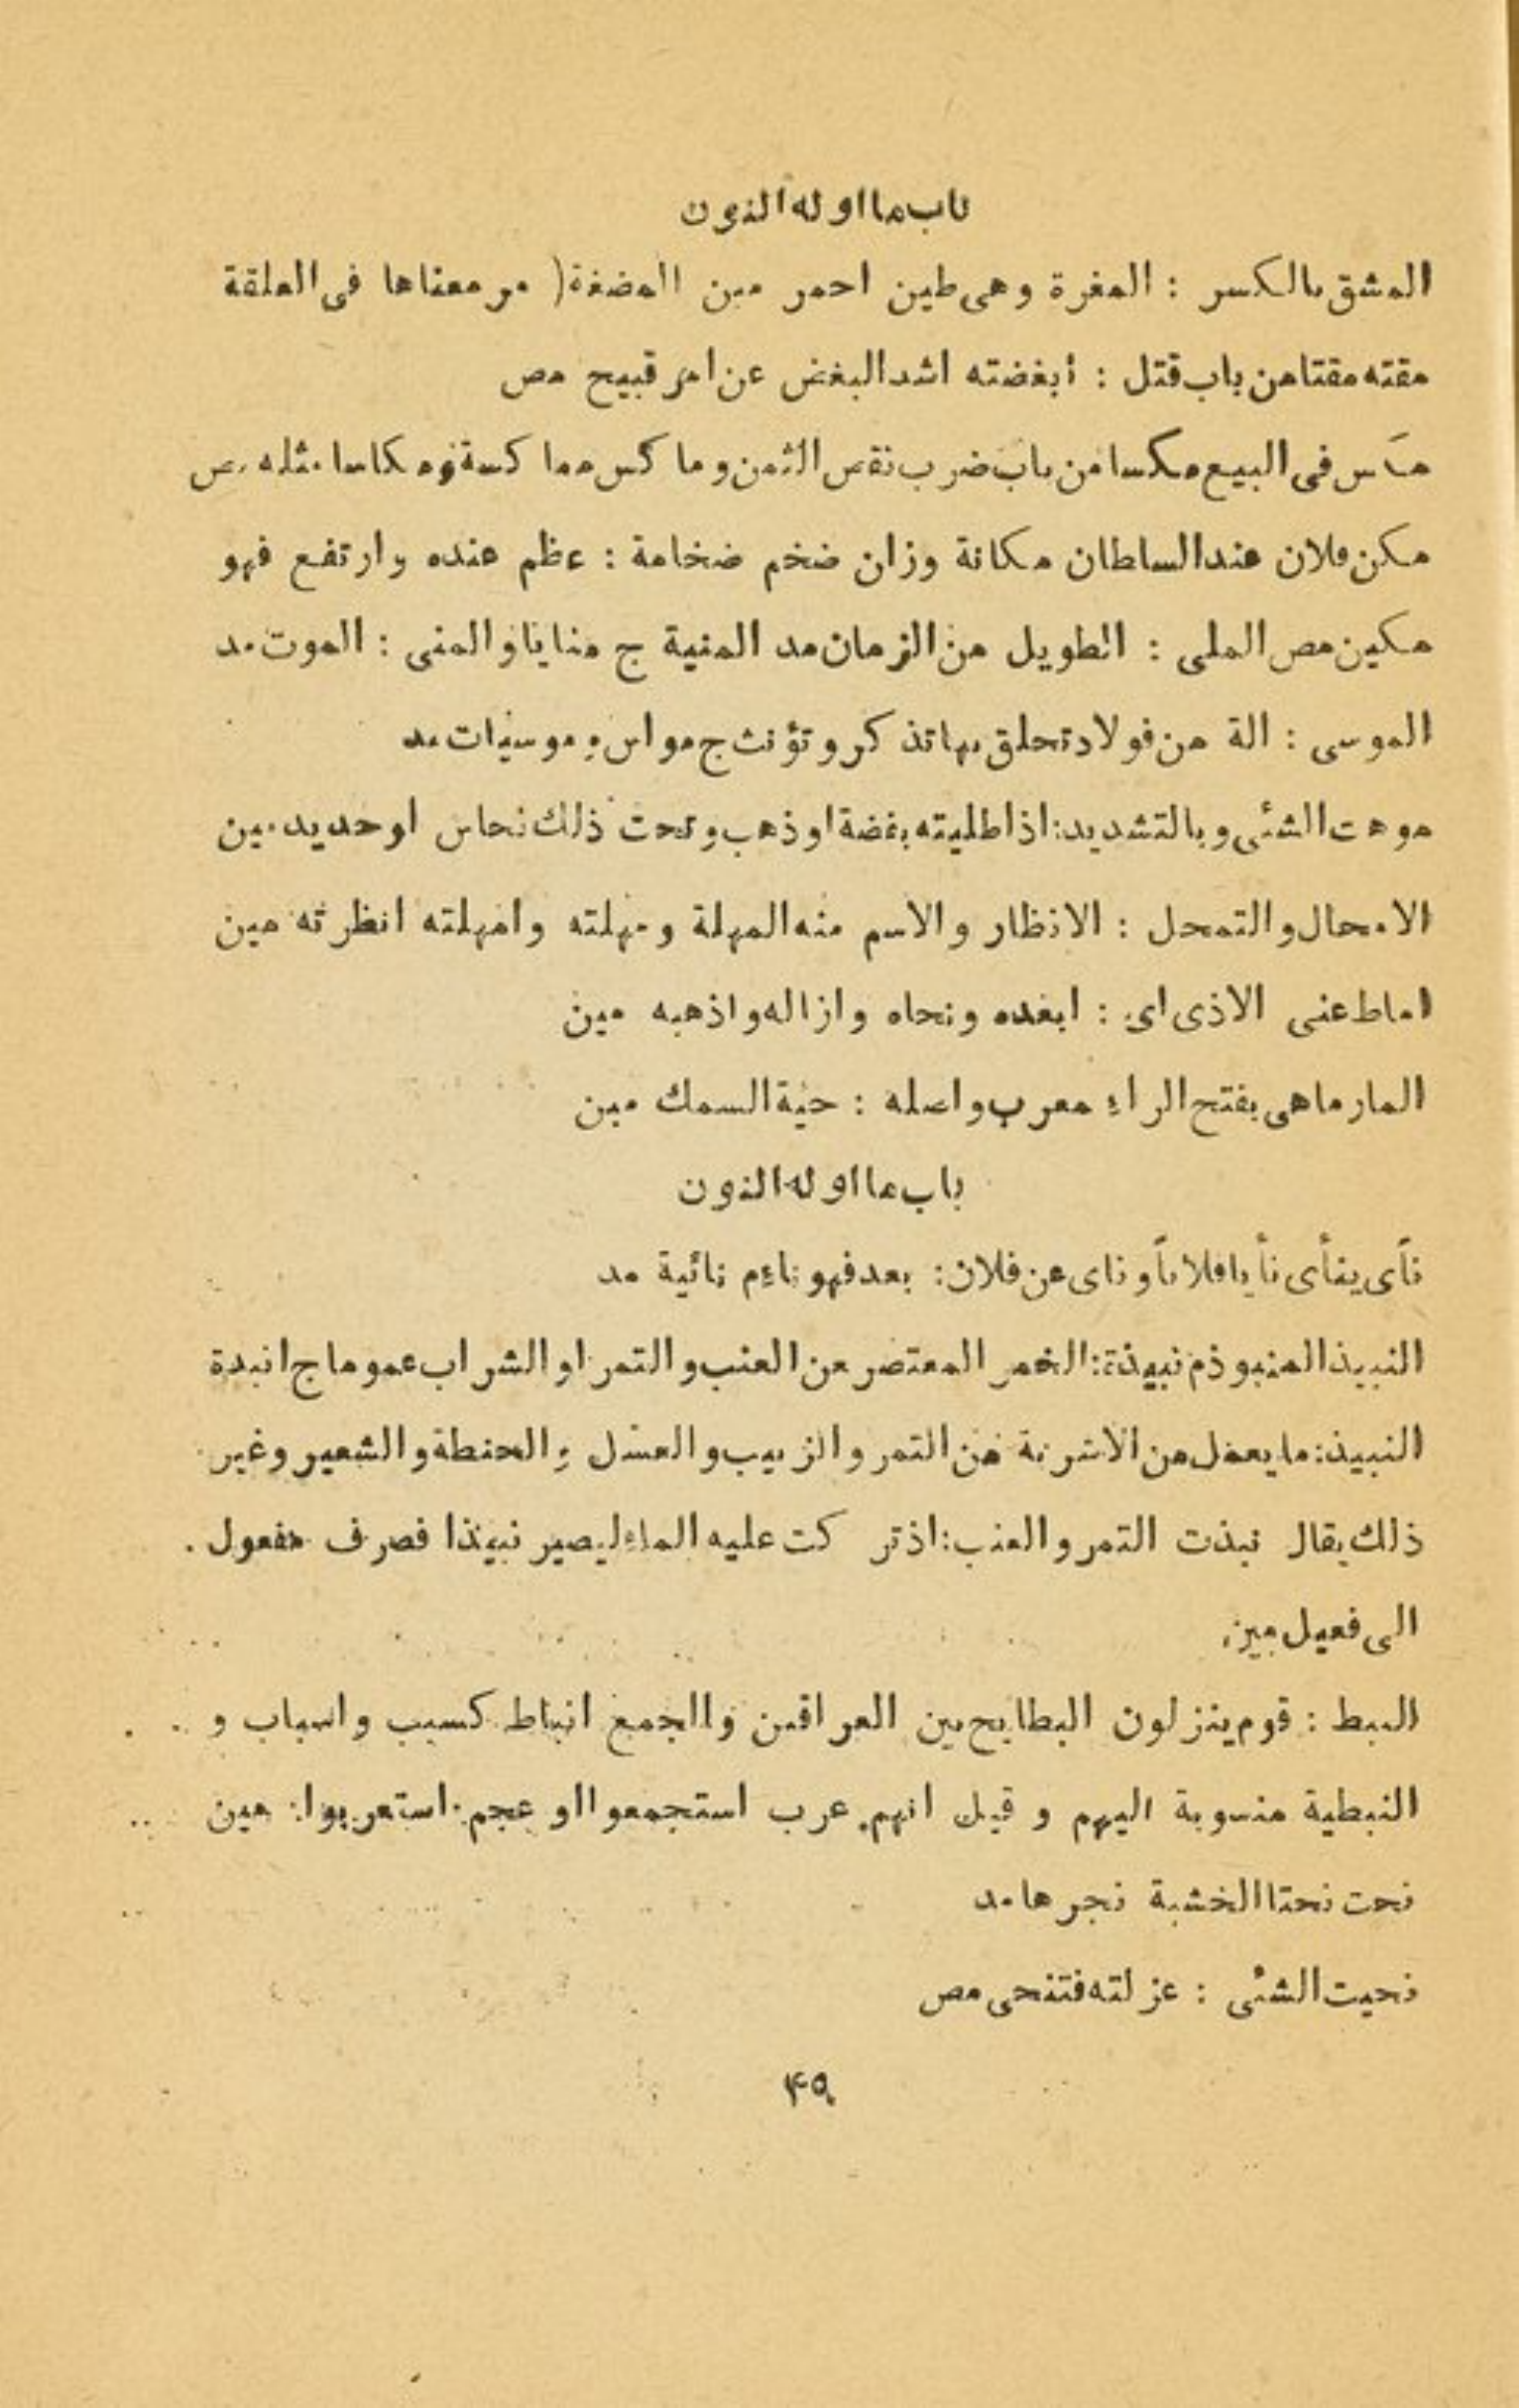 باب ما اوله النون
المشق بالكسر : المغرة وهى طين احمر مين المضغة( مر معناها فى العلقة
مقته مقتا من باب قتل : أبغضته اشد البغض عن امر قبيح مص
مكس فى البيع مكسا من باب ضرب نقص الثمن و ما كس مما كسة ومكاسا مثله مص
مكن فلان عند السلطان مكانة وزان ضخم ضخامة : عظم عنده وارتفع فهو
مكين مص الملى : الطويل من الزمان مد المنية ج منايا و المنى : الموت مد
الموسى : الة من فولاد تحلق بها تذكر و تؤنث ج مواس و موسيات مد
موهت الشئى و بالتشديد: اذا طليته بفضة او ذهب و تحت ذلك نحاس او حديد مين
الامحال و التمحل : الانظار و الاسم منه المهلة و مهلته و امهلته انظرته مين
اماط عنى الاذى اى : ابعده ونحاه وازاله و اذهبه مين
المارماهى بفتح الراء معرب و اصله : حية السمك مين
باب ما اوله النون
نآى ينأى نأيا فلانآ و ناى عن فلان: بعد فهو ناء م نائية مد
النبيذ المنبوذ م نبيذة: الخمر المعتصر عن العنب و التمر او الشراب عموما ج انبدة
النبيذ: ما يعمل من الاشربة من التمر و الزبيب و العسل و الحنطة و الشعير وغير
ذلك يقال نبذت التمر و العنب: اذتركت عليه الماء ليصير نبيذا فصرف مفعول
الى فعيل مين
النبط : قوم ينزلون البطايح بين العراقين و الجمع انباط كسبب و اسباب و
النبطية منسوبة اليهم و قيل انهم عرب استجمعوا او عجم استعربوا: مين
نحت نحتا الخشبة نجرها مد
نحيت الشئى : عزلته فتنحى مص
۴۵